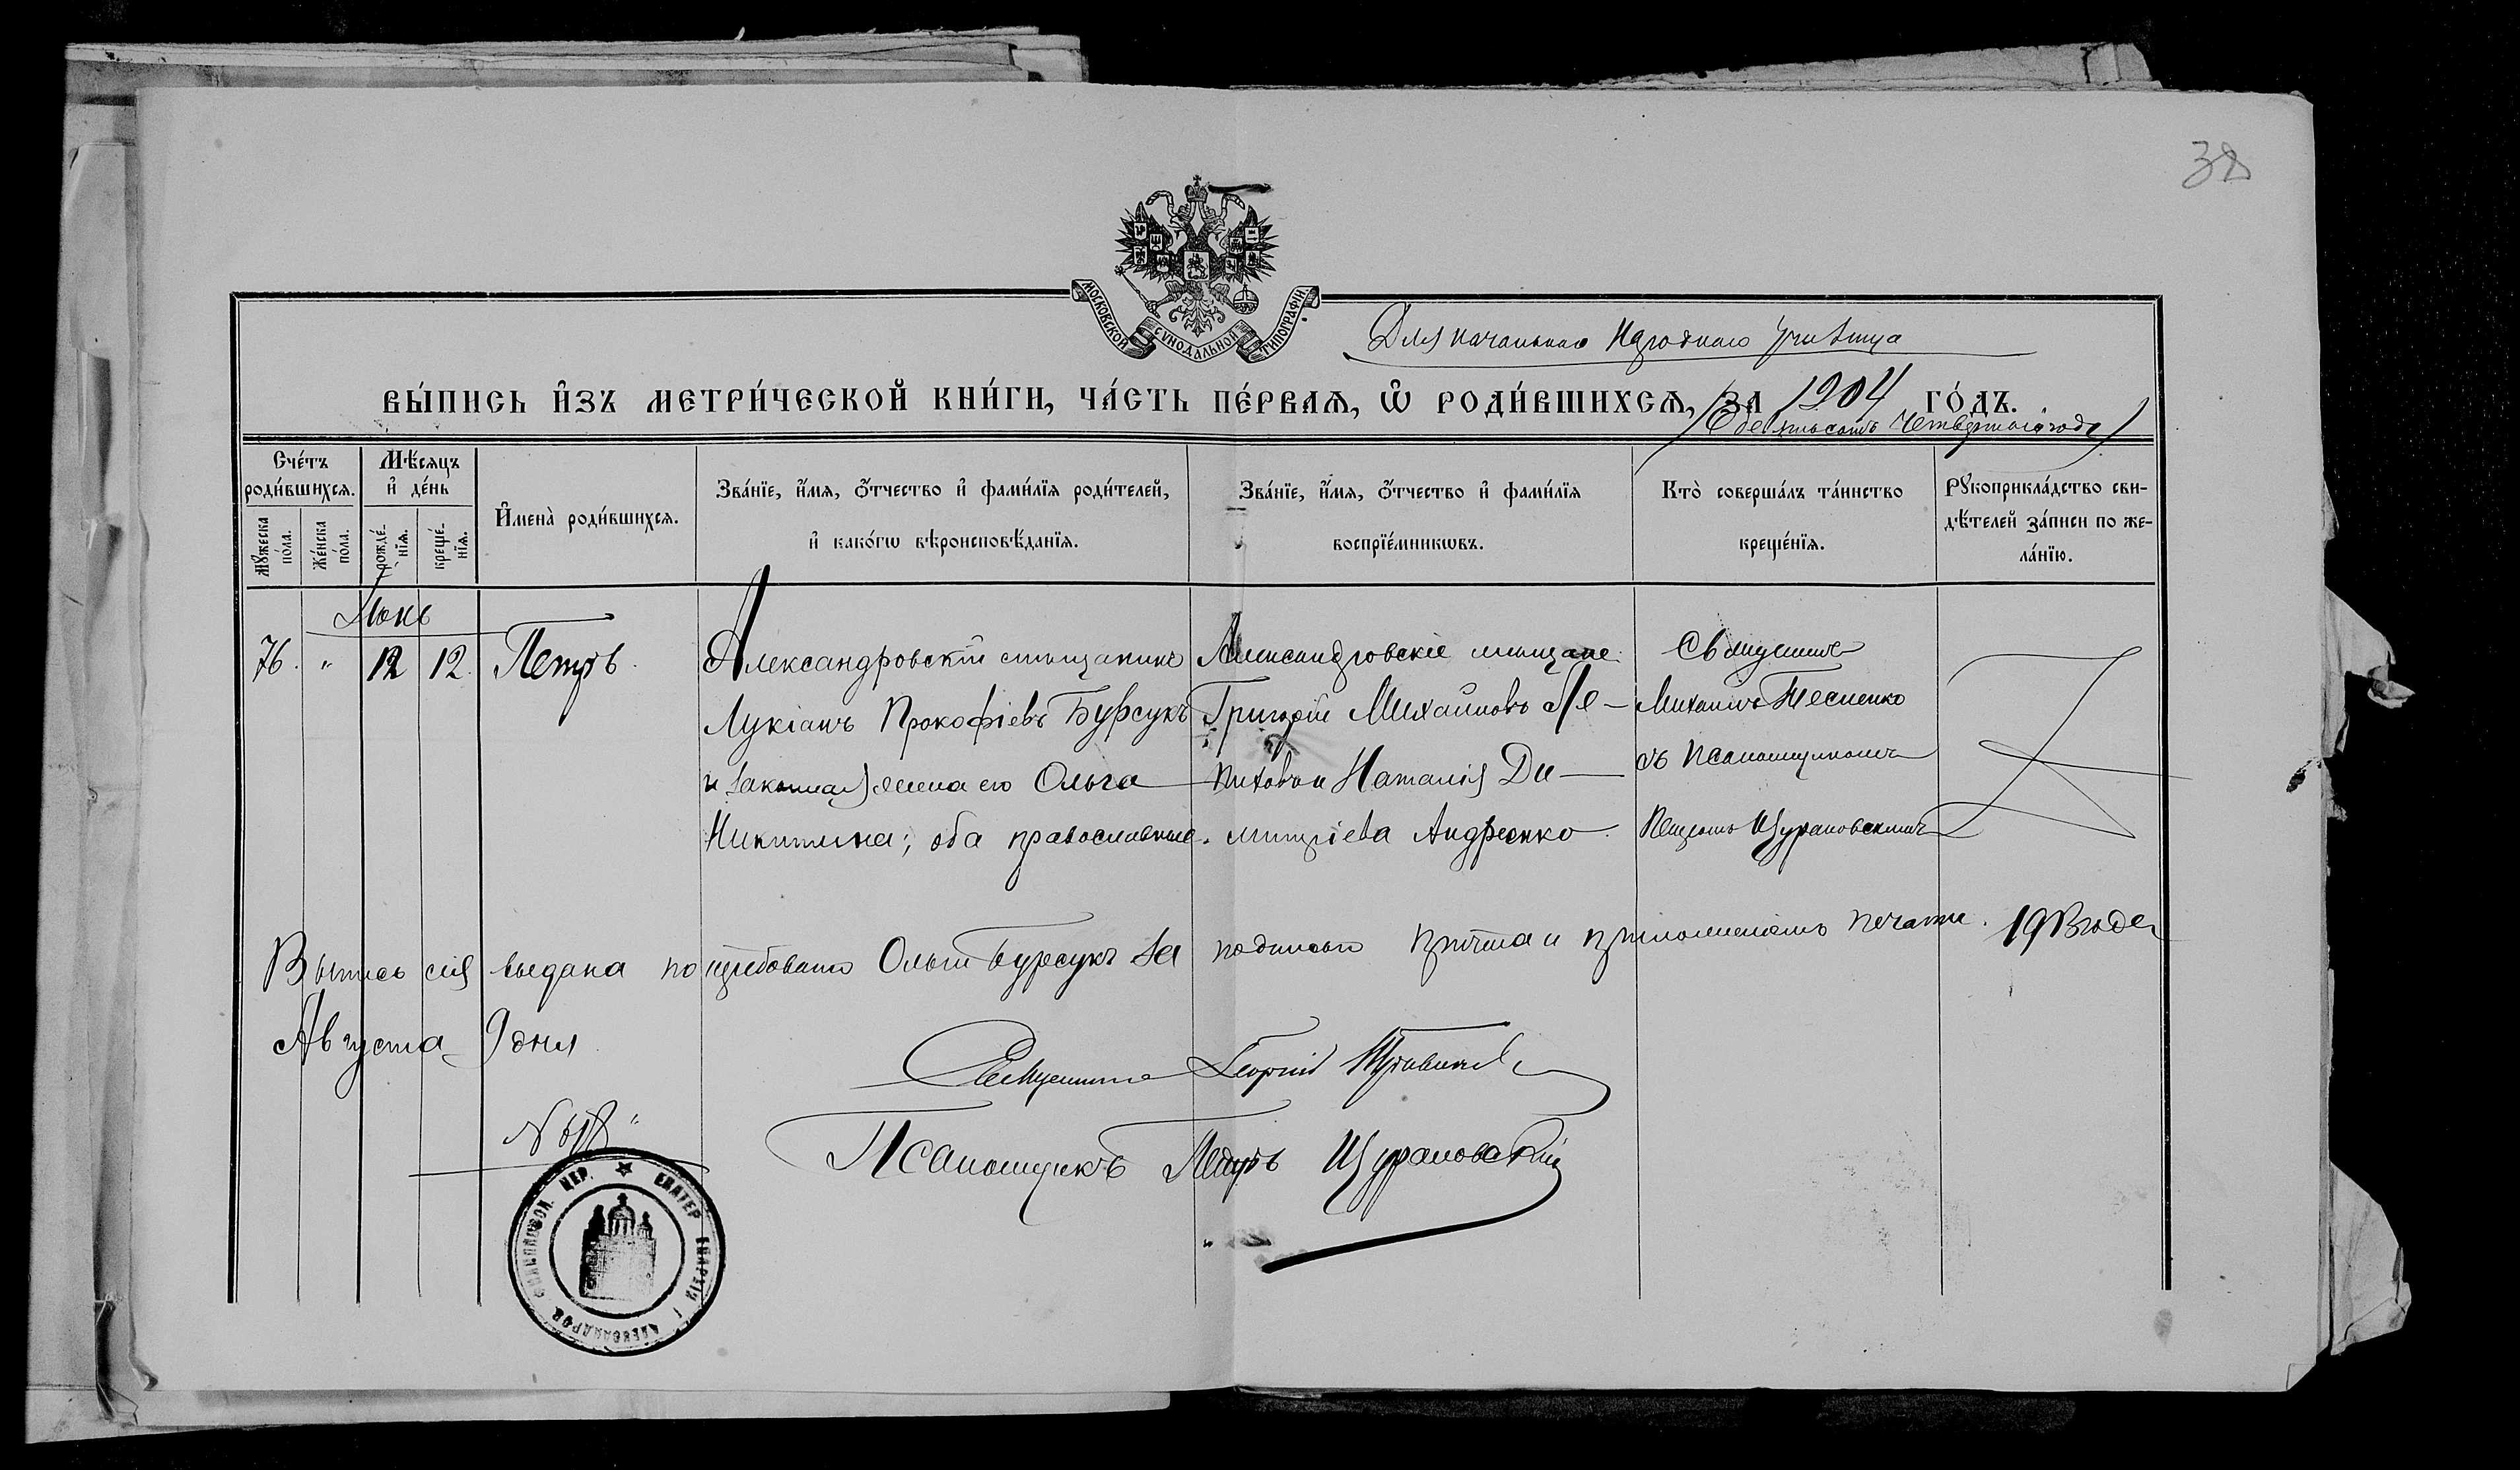 38
МОСКОВСКОЙ СѴНОДАЛЬНОЙ ТИПОГРАФІИ.
Для начальнаго Народнаго Училища
ВЫ́ПИСЬ И҆ЗЪ МЕТРИ́ЧЕСКОЙ КНИ́ГИ, ЧА́СТЬ ПЕ́РВАѦ, Ѡ҆ РОДИ́ВШИХСѦ, ЗА 1904 ГО́ДЪ.
четвертаго года)
Сче́тъ роди́вшихсѧ.
Мꙋ́жеска по́ла.
Же́нска по́ла.
Мѣ́сѧцъ и҆ де́нь
рожде́нїѧ.
креще́нїѧ.
И҆мена̀ роди́вшихсѧ.
Зва́нїе, и҆́мѧ, ѻ҆́тчество и҆ фами́лїѧ роди́телей,
и҆ како́гѡ вѣроисповѣ́данїѧ.
Зва́нїе, и҆́мѧ, ѻ҆́тчество и҆ фами́лїѧ
воспрїе́мникѡвъ.
Кто̀ соверша́лъ та́инство
креще́нїѧ.
Рꙋкоприкла́дство сви-
дѣ́телей за́писи по же-
ла́нїю.
Іюнь
76. " 12 12. Петръ.
Александровскій мѣщанинъ
Лукіанъ Прокофіевъ Бурсукъ
и законная жена его Ольга
Никитина; оба православные.
Александровскіе мѣщане:
Григорій Михайловъ Ле-
пиховъ и Наталія Ди-
митріева Андреенко.
Священникъ
Михаилъ
съ Псаломщикомъ
Петромъ Щурановскимъ
Выпись сія выдана по требованію Ольги Бурсукъ за подписью причта и приложеніемъ печати. 1913 года
Августа 9 дня
Священникъ Георгій
№ 618
Псаломщикъ Петръ Щурановскій
ЕКАТЕР. ЕПАРХІИ Г. АЛЕКСАНДРОВ. ЦЕР.